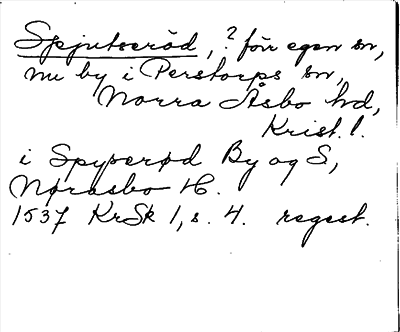 Spjutseröd, ? förr egen sn,
nu by i Perstorps sn,
Norra Åsbo hd,
Krist. l.
i Spyserød By og S,
Nørasbo H.
1537 KrSk 1, s. 4. regest.